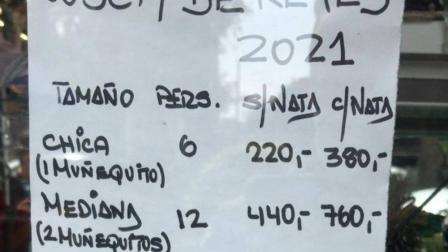 ROSCA DE REYES
2021
TAMAÑO PERS. S/NATA C/NATA
CHICA 6 220,- 380,-
(1 MUÑEQUITO)
MEDIANA 12 440,- 760,-
(2 MUÑEQUITOS)